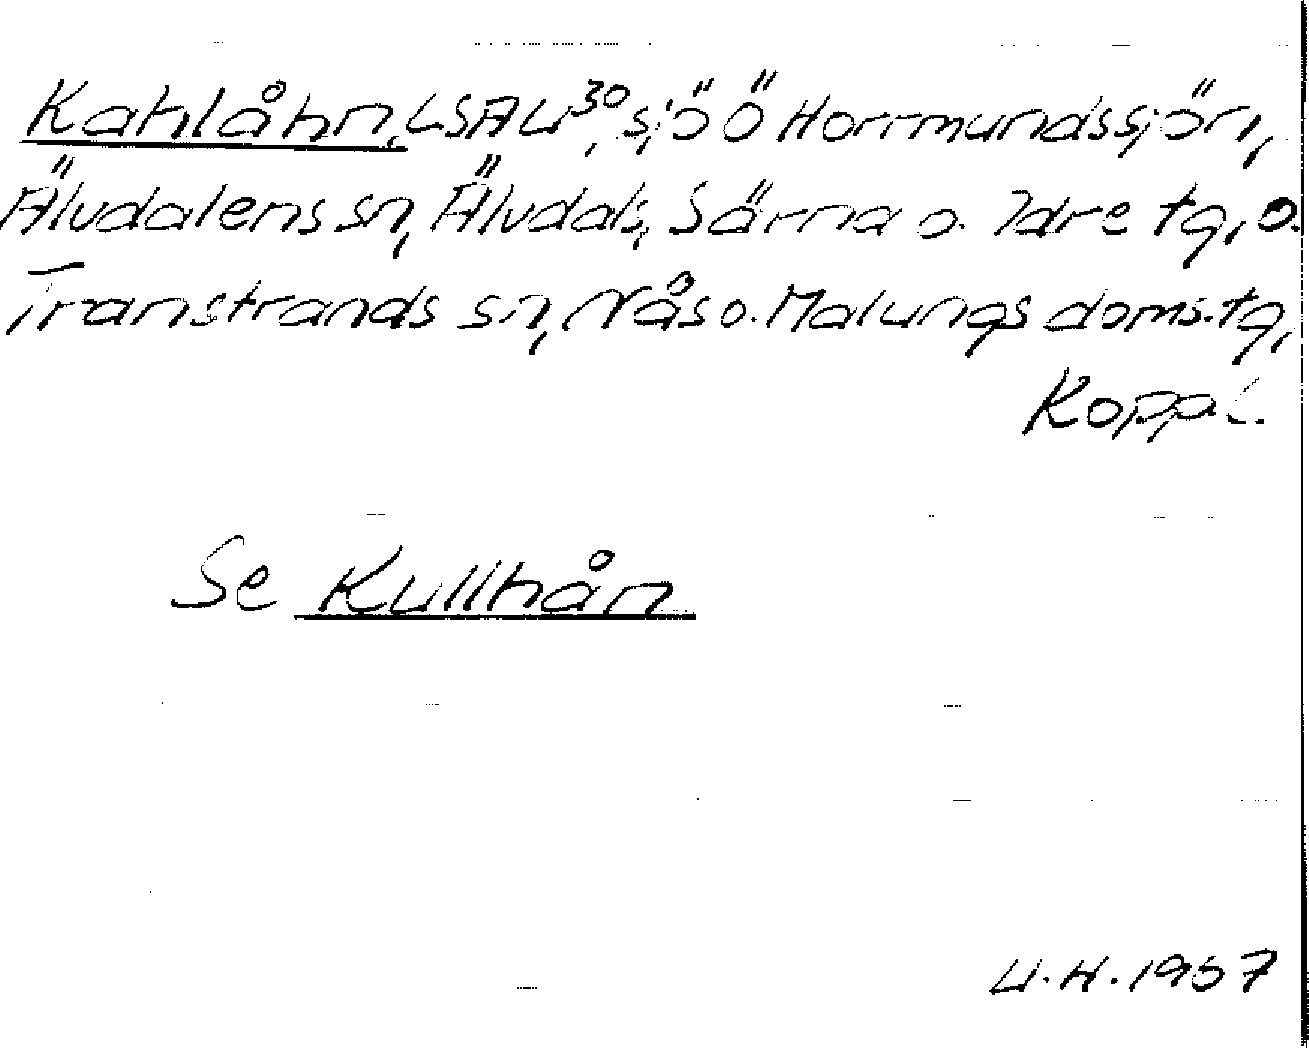 Kahlåhn, LSA 4³⁰, sjö Ö Horrmundssjön,
Älvdalens sn, Älvdals, Särna o. Idre tg, o.
Transtrands sn, Nås o. Malungs doms.tg,
Kopp.l.
Se Kullhån
U.H. 1967